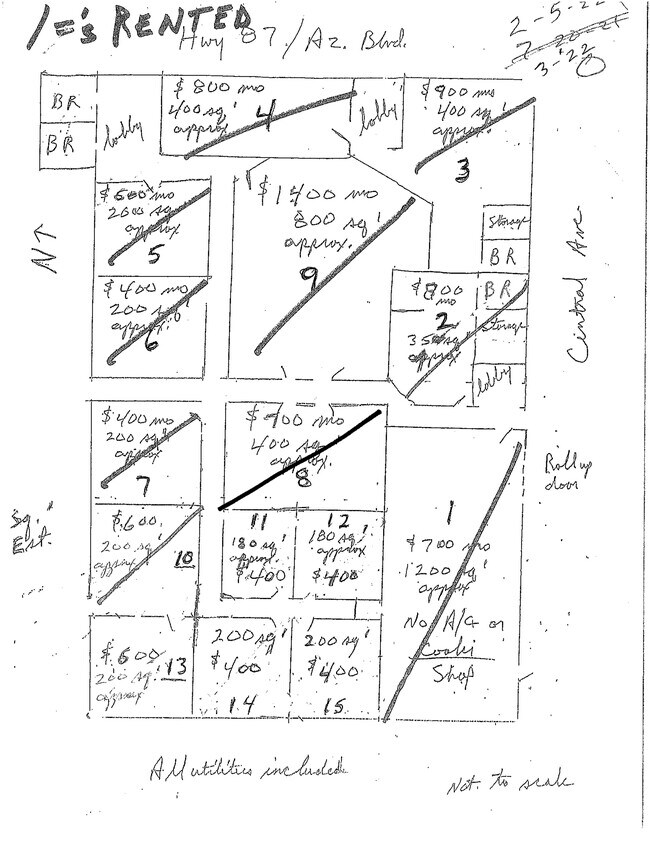 /='s RENTED
Hwy 87 / Az. Blvd.
2-5-22
3-'22
BR
BR
lobby
$800 mo
400 sq'
approx
4
lobby
$900 mo
400 sq'
approx.
3
N↑
$600 mo
200 sq'
approx
5
$1400 mo
800 sq'
approx.
9
Storage
BR
Central Ave.
$400 mo
200 sq'
approx.
6
$800
mo
2
350 sq'
approx
BR
Storage
lobby
$400 mo
200 sq'
approx
7
$700 mo
400 sq
approx.
8
Roll up
door
Sq.'
Est.
$600.
200 sq'
approx
10
11
180 sq'
approx.
$400
12
180 sq'
approx
$400
1
$700 mo
1200 sq'
approx
No A/C or
Shop
$600
200 sq'
approx
13
200 sq'
$400
14
200 sq'
$400
15
All utilities included
Not. to scale